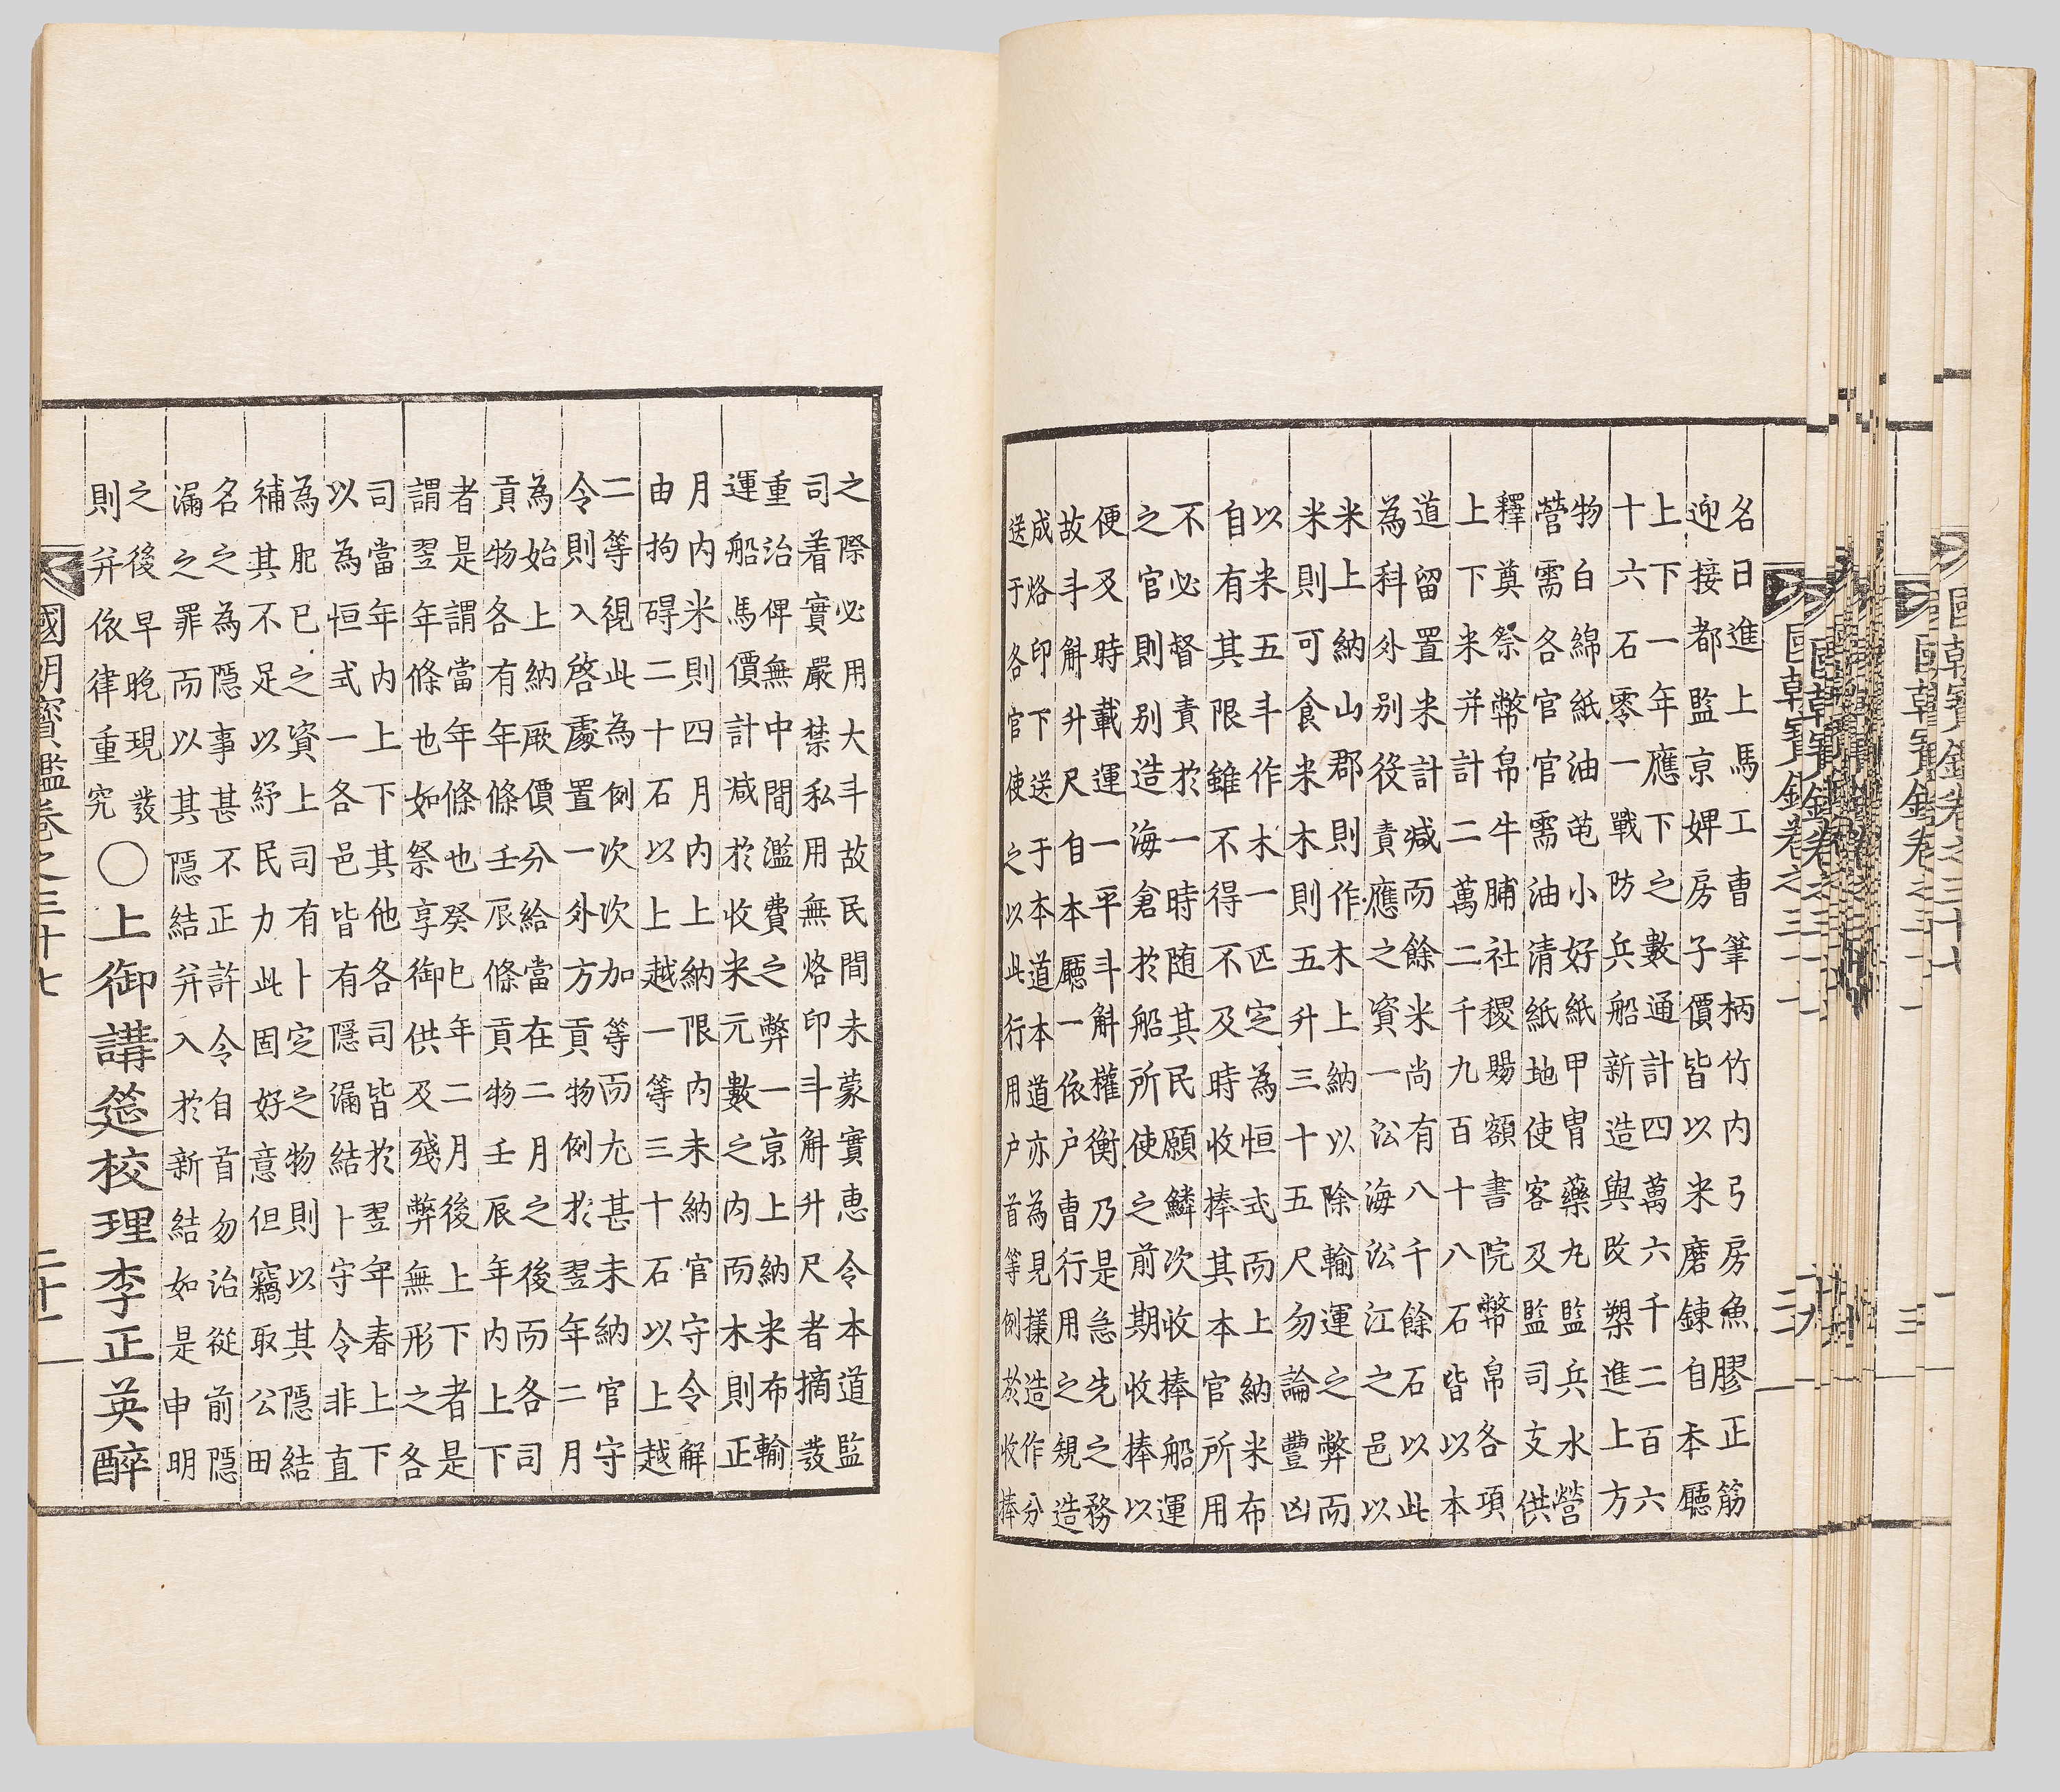 名日進上馬工曹筆柄竹內弓房魚膠正筋
迎接都監京婢房子價皆以米磨鍊自本廳
上下一年應下之數通計四萬六千二百六
十六石零一戰防兵船新造與改槊進上方
物白綿紙油芚小好紙紙甲冑藥丸監兵水營
營需各官官需油清紙地使客及監司支供
釋奠祭幣帛牛脯社稷賜額書院幣帛各項
上下米并計二萬二千九百十八石皆以本
道留置米計減而餘米尚有八千餘石以此
為科外別役責應之資一沿海沿江之邑以
米上納山郡則作木上納以除輸運之弊而
米則可食米木則五升三十五尺勿論豐凶
以米五斗作木一匹定為恒式而上納米布
自有其限雖不得不及時收捧其本官所用
不必督責於一時随其民願鱗次收捧船運
之官則別造海倉於船所使之前期收捧以
便及時載運一平斗斛權衡乃是急先之務
故斗斛升尺自本廳一依戶曹行用之規造
成烙印下送于本道本道亦為見樣造作分
送于各官使之以此行用戶首等例於收捧
之際必用大斗故民間未蒙實惠令本道監
司着實嚴禁私用無烙印斗斛升尺者摘發
重治俾無中間濫費之弊一京上納米布輸
運船馬價計減於收米元數之內而木則正
月內米則四月內上納限內未納官守令解
由拘碍二十石以上越一等三十石以上越
二等視此為例次次加等而尤甚未納官守
令則入啓處置一外方貢物例於翌年二月
為始上納厥價分給當在二月之後而各司
貢物各有年條壬辰條貢物壬辰年內上下
者是謂當年條也癸巳年二月後上下者是
謂翌年條也如祭享御供及殘弊無形之各
司當年內上下其他各司皆於翌年春上下
以為恒式一各邑皆有隱漏結卜守令非直
為肥已之資上司有卜定之物則以其隱結
補其不足以紓民力此固好意但竊取公田
名之為隱事甚不正許令自首勿治從前隱
漏之罪而以其隱結并入於新結如是申明
之後早晚現發
則并依律重究
○上御講筵校理李正英醉
國朝寶鑑卷之三十七
二十一